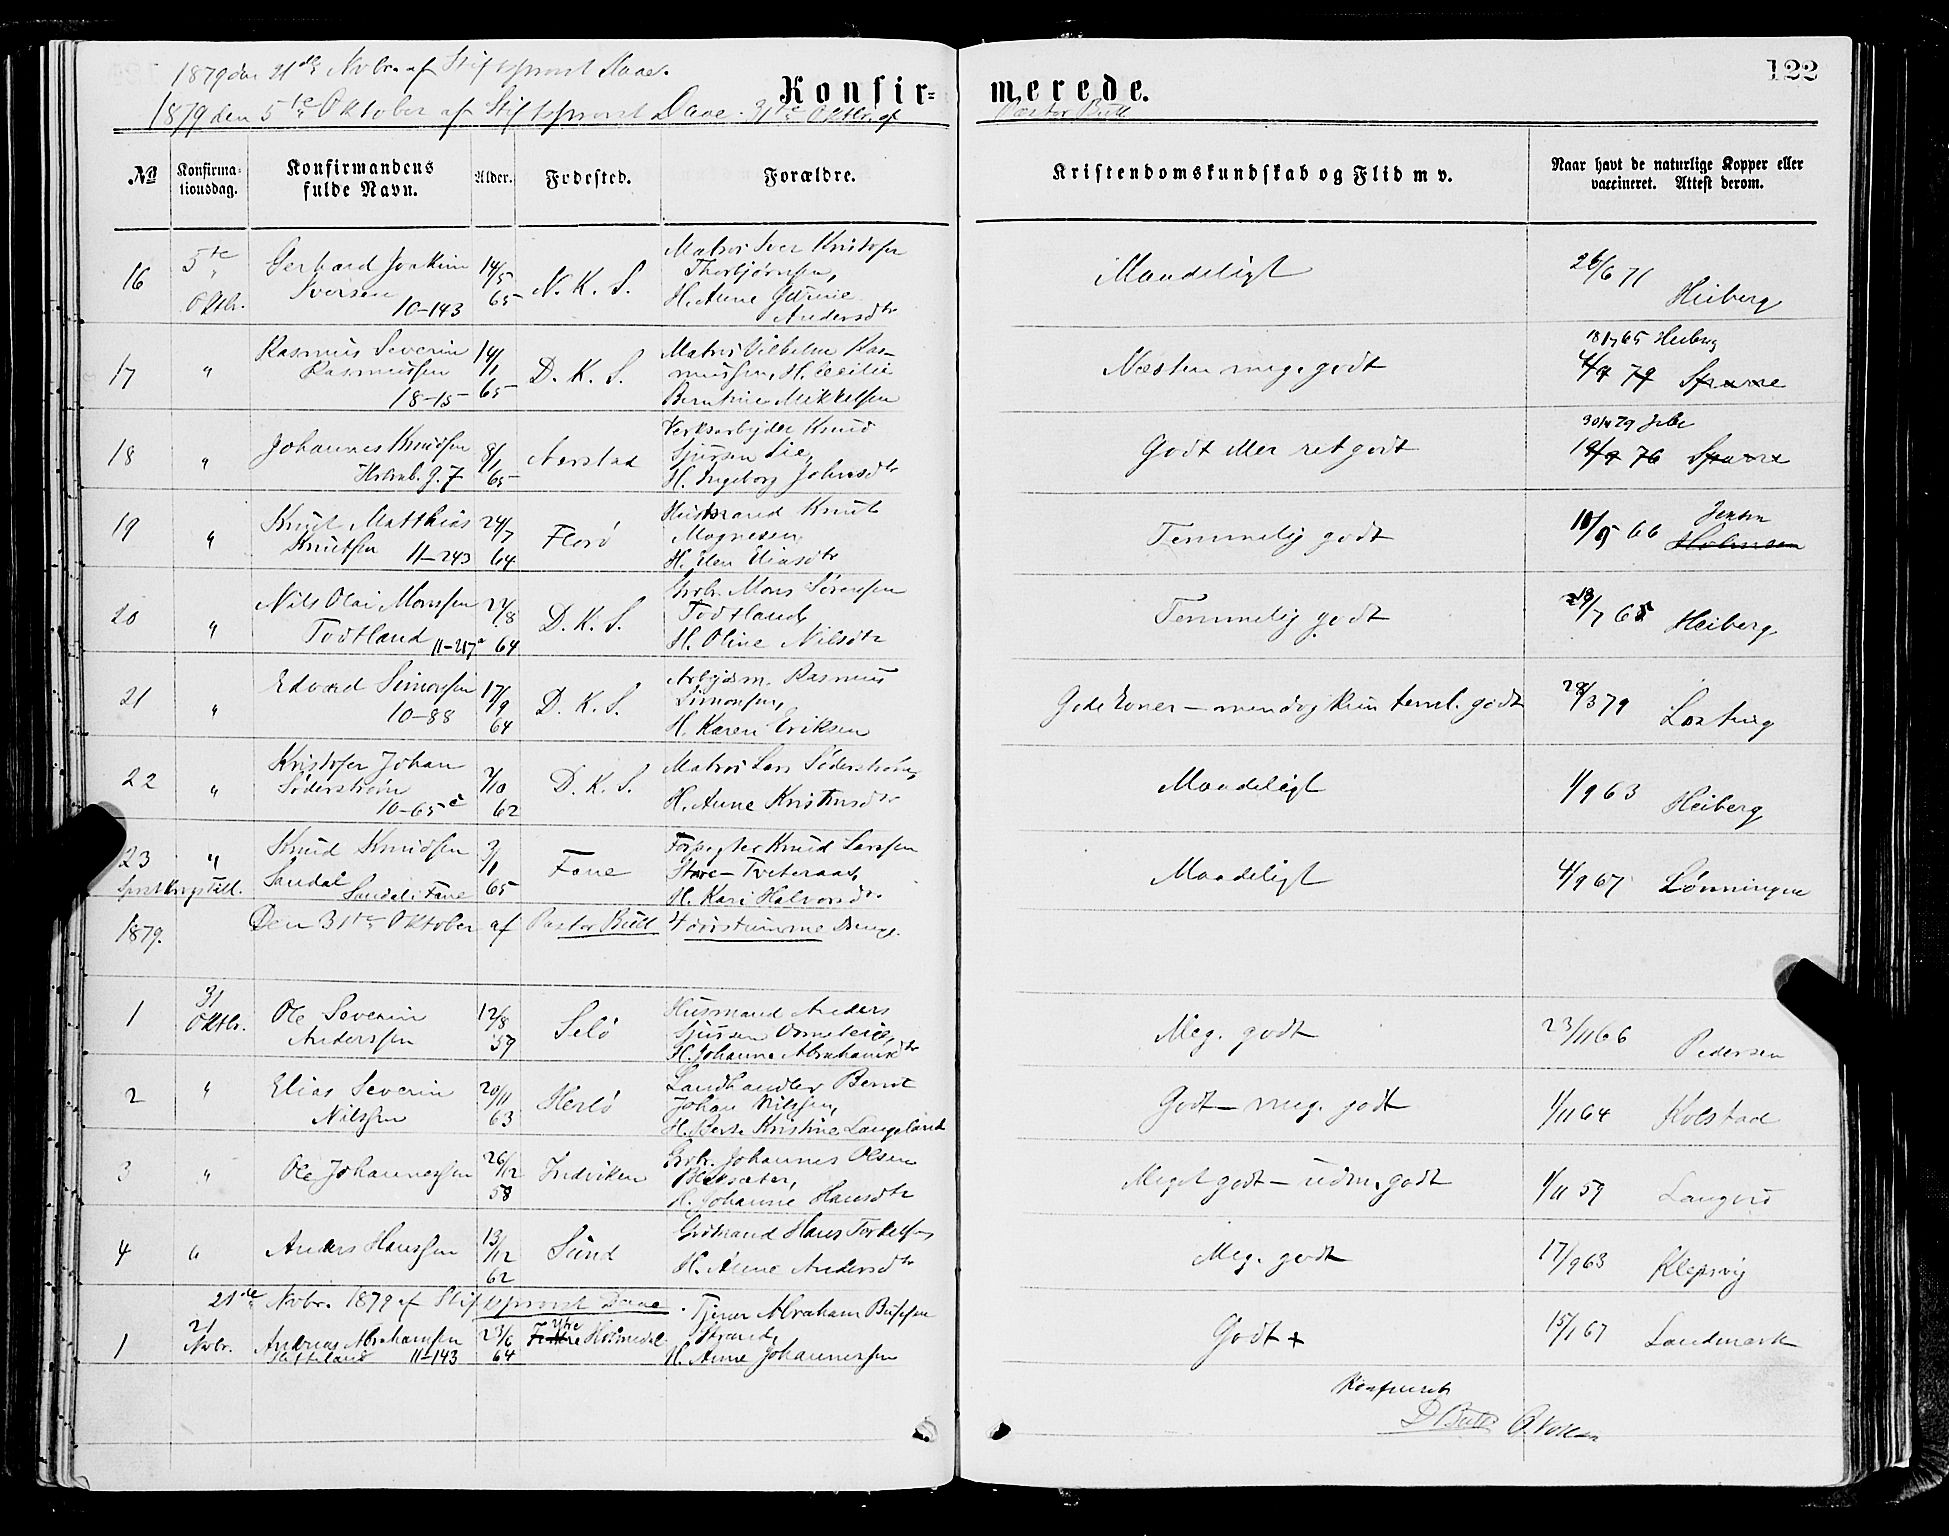 122
1879 den 21de Novbr. af Stiftsprovst Daae.
Konfir- merede.
1879 den 5te Oktober af Stiftsprovst Daae. 31te Oktbr. af Pastor Bull
№ Konfirma-tionsdag. Konfirmandens fulde Navn. Alder. Fødested. Forældre. Kristendomskundskab og Flid m v. Naar havt de naturlige Kopper eller vaccineret. Attest derom.
16 5te Oktbr. Gerhard Joakim Iversen 10-143 14/5 65 N. K. S. Matros Iver Kristofer Thorbjørnsen, H. Anne Andersdtr Maadeligt 26/6 71 Heiberg
17 " Rasmus Severin Rasmussen 18-15 14/1 65 D. K. S. Matros Vilhelm Rasmussen, H. Cecilie Berntine Mikkelsen Næsten meg. godt 18/7 65 Heiberg 4/9 79 Sparre
18 " Johannes Knudsen 8/1 65 Aarstad Verksarbejder Knud Sjursen Lie, H. Ingeborg Johnsdtr Godt eller ret godt 19/9 76 Sparre
19 " Knut Matthias Knutsen 11-243 24/7 64 Florø Husmand Knut Magnesen H. Elen Eliasdtr Temmelig godt 10/9 66 Jensen Holmsen
20 " Nils Olai Monssen Todtland 11-217a 27/8 64 D. K. S. Grbr. Mons Sørensen Todtland, H. Oline Nilsdtr Temmelig godt 28/7 65 Heiberg
21 " Edvard Simonsen 10-88 17/9 64 D. K. S. Arbejdsm. Rasmus Simonsen, H. Karen Eriksen Gode Evner - men dog kun teml. godt 28/3 79
22 " Kristofer Johan Søderstrøm 10-65c 7/10 62 D. K. S. Matros Lars Søderstrøm, H. Anne Kristensdtr Maadeligt 1/9 63 Heiberg
23 " Knud Knudsen Sandal Sandal i Fane 3/1 65 Fane Forpagter Knud Larssen Store-Tveteraas, H. Kari Halvorsdtr Maadeligt 4/9 67 Lønningen
1879. Den 31te Oktober af Pastor Bull 4 døvstumme Drenge.
1 31 Oktbr. Ole Severin Anderssen 12/8 59 Selø Husmand Anders Sjursen H. Johanne Abrahamsdtr Meg. godt 23/11 66 Pedersen
2 " Elias Severin Nilssen 20/11 63 Herlø Landhandler Bernt Johan Nilssen, H. Berte Kristine Langeland Godt - meg. godt 1/11 64 Kolstad
3 " Ole Johannessen 26/12 58 Indviken Grbr. Johannes Olsen H. Johanne Hansdtr Meget godt - udm. godt 1/11 59
4 " Anders Hanssen 13/12 62 Sund Grdmand Hans Torkelsen H. Anne Andersdtr Meg. godt 17/9 63 Klepsvig
21de Novbr. 1879 af Stiftsprovst Daae.
1 21 Novbr. Andreas Abrahamsen 11-143 23/6 64 Ytre Holmedal Tjener Abraham Strand, H. Anne Johannessen Godt + 15/1 67 Landmark
Konfereret
D Bull